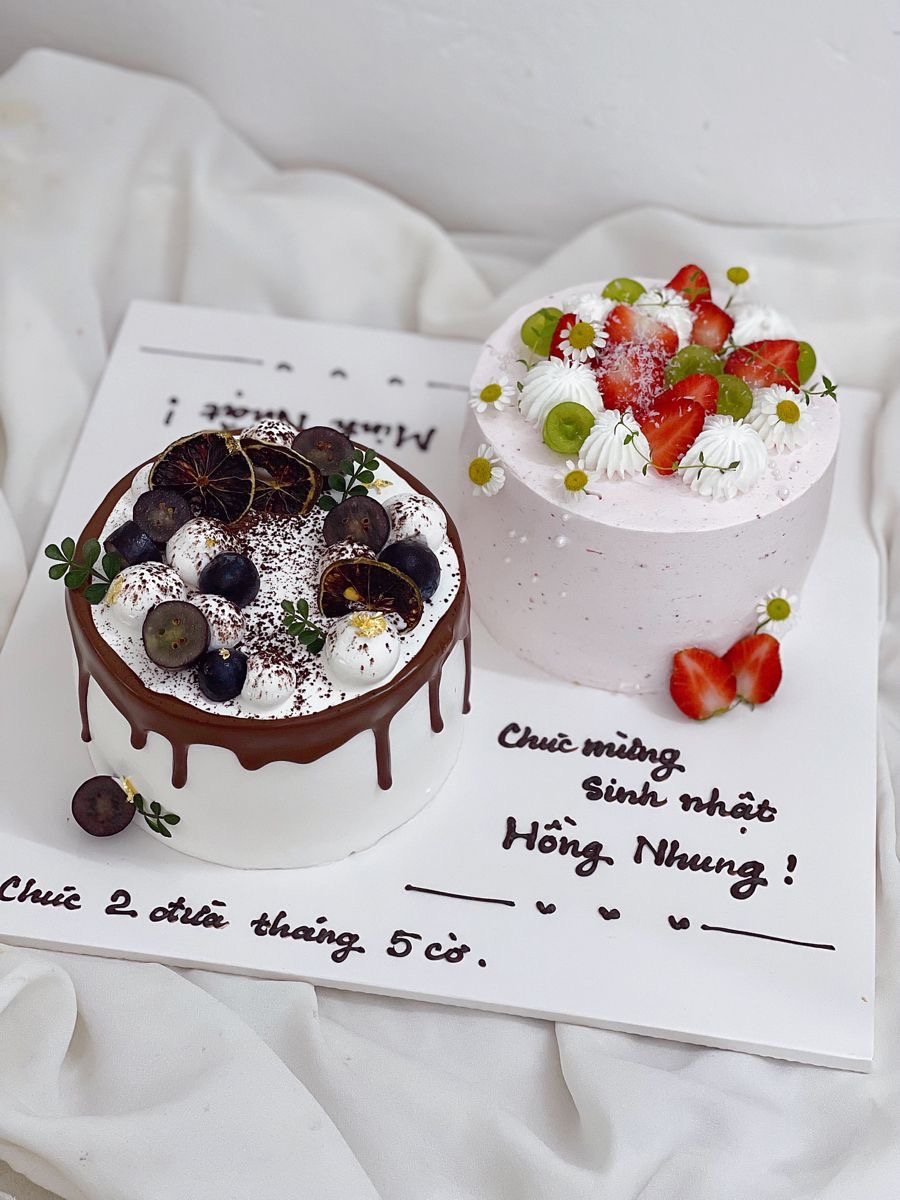 Minh Nhật !
Chúc mừng
Sinh nhật
Hồng Nhung !
Chúc 2 đứa tháng 5 cờ .